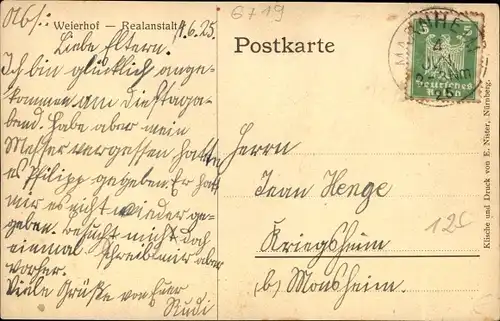 Abs:
Weierhof — Realanstalt
4.6.25.
Liebe Eltern.
Ich bin glücklich ange-
kommen am Dienstaga-
bend. Habe aber mein
Messer vergessen hatte
es Philipp gegeben. Er hat
mir es nicht wieder ge-
geben. Besucht mich doch
einmal. Schreibt mir aber
vorher.
Viele Grüße von Euer
Rudi
6719
Postkarte
MANNHEIM
4
JUN
5
Deutsches
Reich
Herrn
Jean Henge
Kriegsheim
(b) Monsheim.
12€
Klische und Druck von E. Nister, Nürnberg.